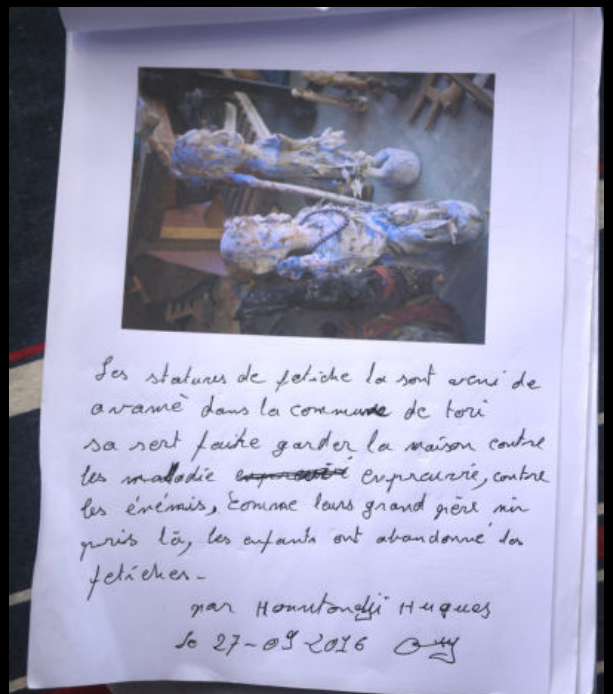 Les statures de fetiche la sont venu de
avamè dans la commune de tori
sa sert faite garder la maison contre
les maladie enprourié, contre
les énémis, comme leurs grand père
pris là, les enfants ont abandonné les
fetiches -
par Hountondji Hugues
le 27-09 2016